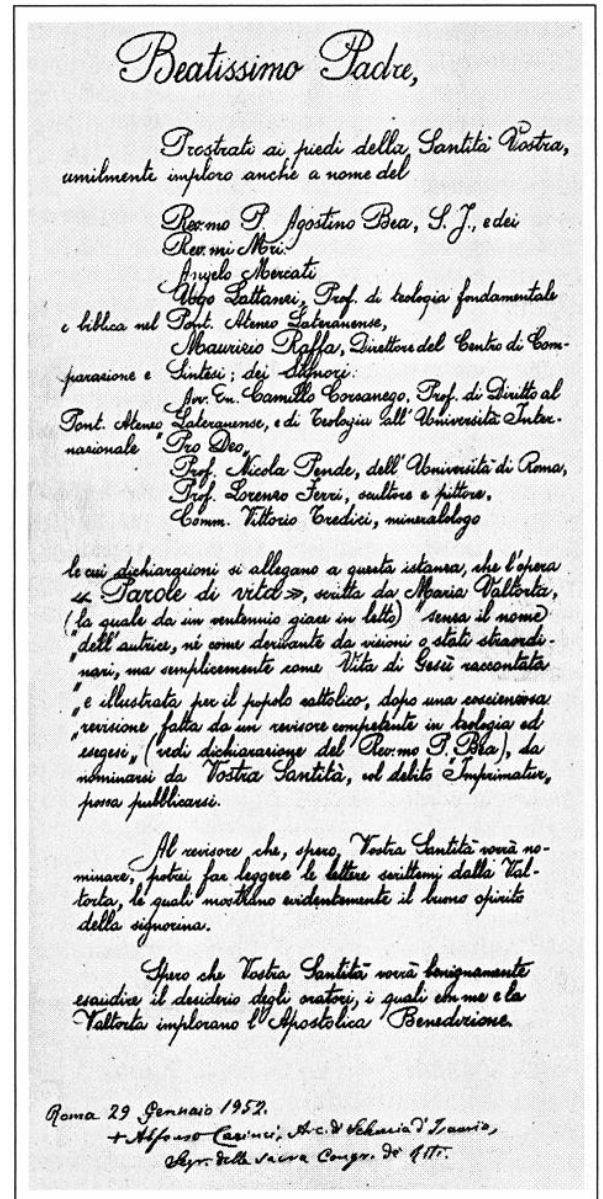 Beatissimo Padre,
Prostrati ai piedi della Santità Vostra,
umilmente imploro anche a nome del
Rev.mo P. Agostino Bea, S. J., e dei
Rev.mi Mri:
Angelo Mercati
Ugo Lattanzi, Prof. di teologia fondamentale
e biblica nel Pont. Ateneo Lateranense,
Maurizio Raffa, Direttore del Centro di Com-
parazione e Sintesi; dei Signori:
Avv. En. Camillo Corsanego, Prof. di Diritto al
Pont. Ateneo Lateranense, e di Teologia all'Università Inter-
nazionale "Pro Deo„
Prof. Nicola Pende, dell'Università di Roma,
Prof. Lorenzo Ferri, scultore e pittore,
Comm. Vittorio Tredici, mineralologo
le cui dichiarazioni si allegano a questa istanza, che l'opera
« Parole di vita », scritta da Maria Valtorta,
(la quale da un ventennio giace in letto) "senza il nome
"dell'autrice, né come derivante da visioni o stati straordi-
"nari, ma semplicemente come Vita di Gesù raccontata
"e illustrata per il popolo cattolico, dopo una coscienziosa
"revisione fatta da un revisore competente in teologia ed
esegesi„ (vedi dichiarazione del Rev.mo P. Bea), da
nominarsi da Vostra Santità, col debito "Imprimatur„
possa pubblicarsi.
Al revisore che, spero, Vostra Santità vorrà no-
minare, potrei far leggere le lettere scrittemi dalla Val-
torta, le quali mostrano evidentemente il buono spirito
della signorina.
Spero che Vostra Santità vorrà benignamente
esaudire il desiderio degli oratori, i quali con me e la
Valtorta implorano l'Apostolica Benedizione.
Roma 29 Gennaio 1952.
+ Alfonso Carinci, Arc. di Seleucia d'Isauria,
Segr. della Sacra Congr. dei Riti.